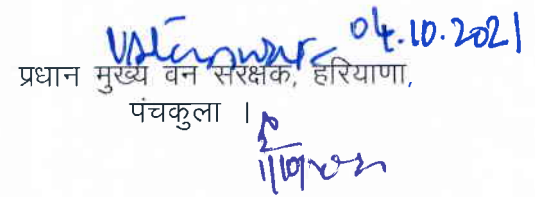 04.10.2021
प्रधान मुख्य वन संरक्षक, हरियाणा,
पंचकुला ।